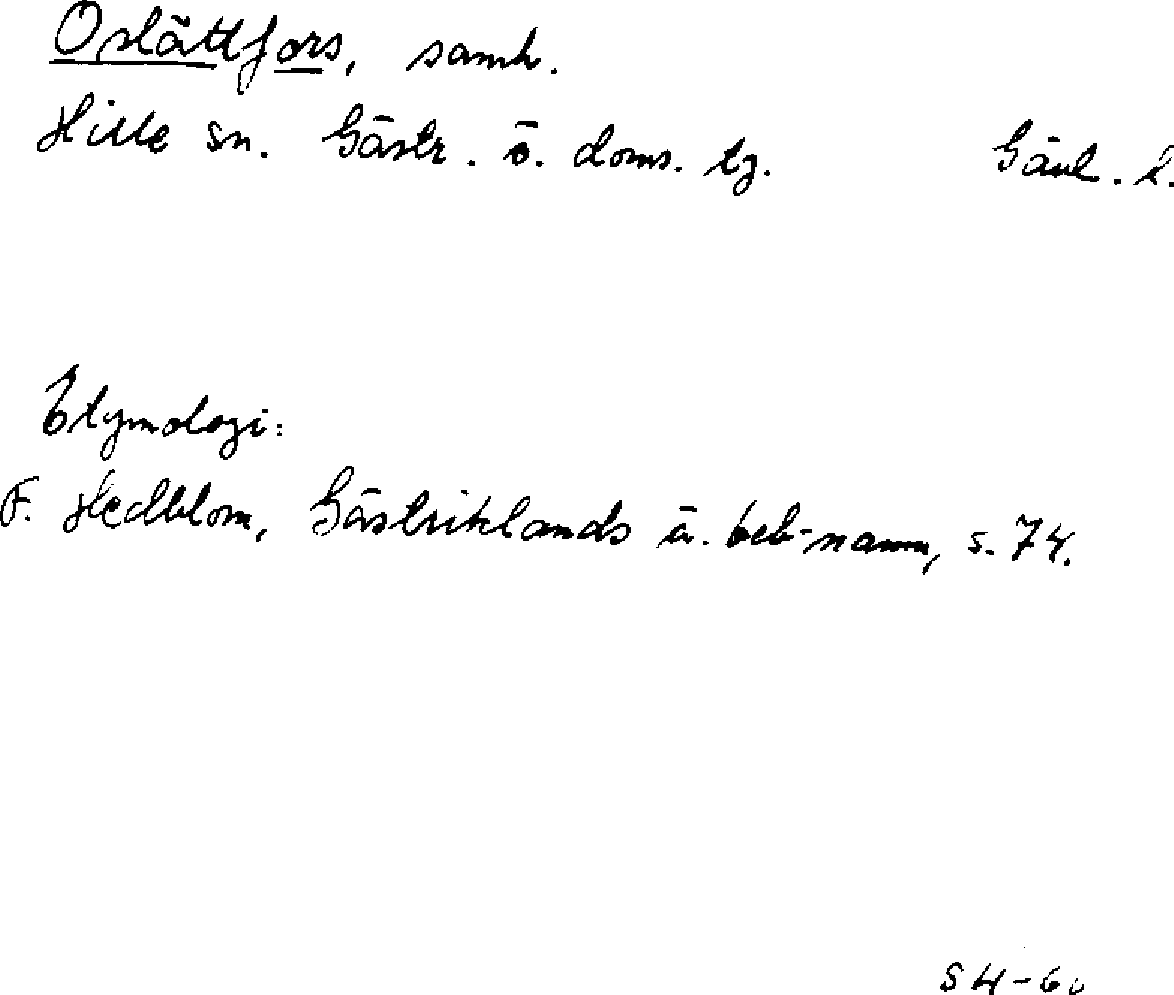 Oslättfors, samh.
Hille sn. Gästr. ö. doms. tg. Gävl. l.
Etymologi:
F. Hedblom, Gästriklands ä. beb-namn, s. 74.
SH-60